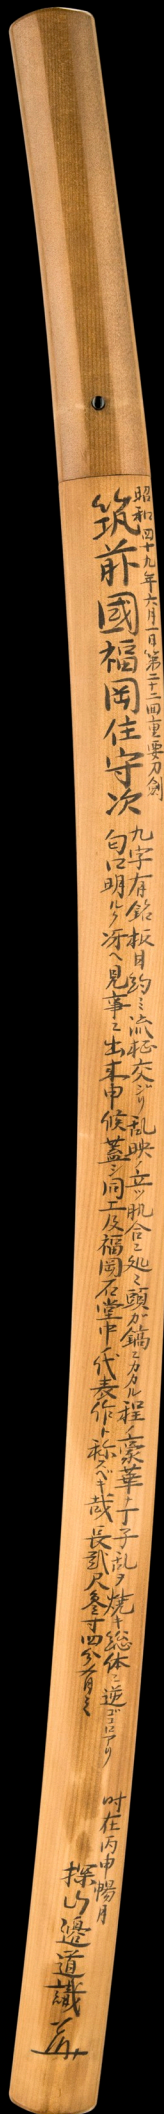 昭和四十九年六月一日第二十二回重要刀劍
筑前國福岡住守次
九字有銘板目約ミ流柾交ジリ乱映ノ立ツ肌合ニ処々頭ガ鎬ニカカル程ノ豪華ナ丁子乱ヲ焼キ総体ニ逆ゴコロアリ
匂口明ルク冴ヘ見事ニ出来申候蓋シ同工及福岡石堂中ノ代表作ト称スベキ哉 長貳尺参寸四分有之
時在丙申暢月
探山邉道識